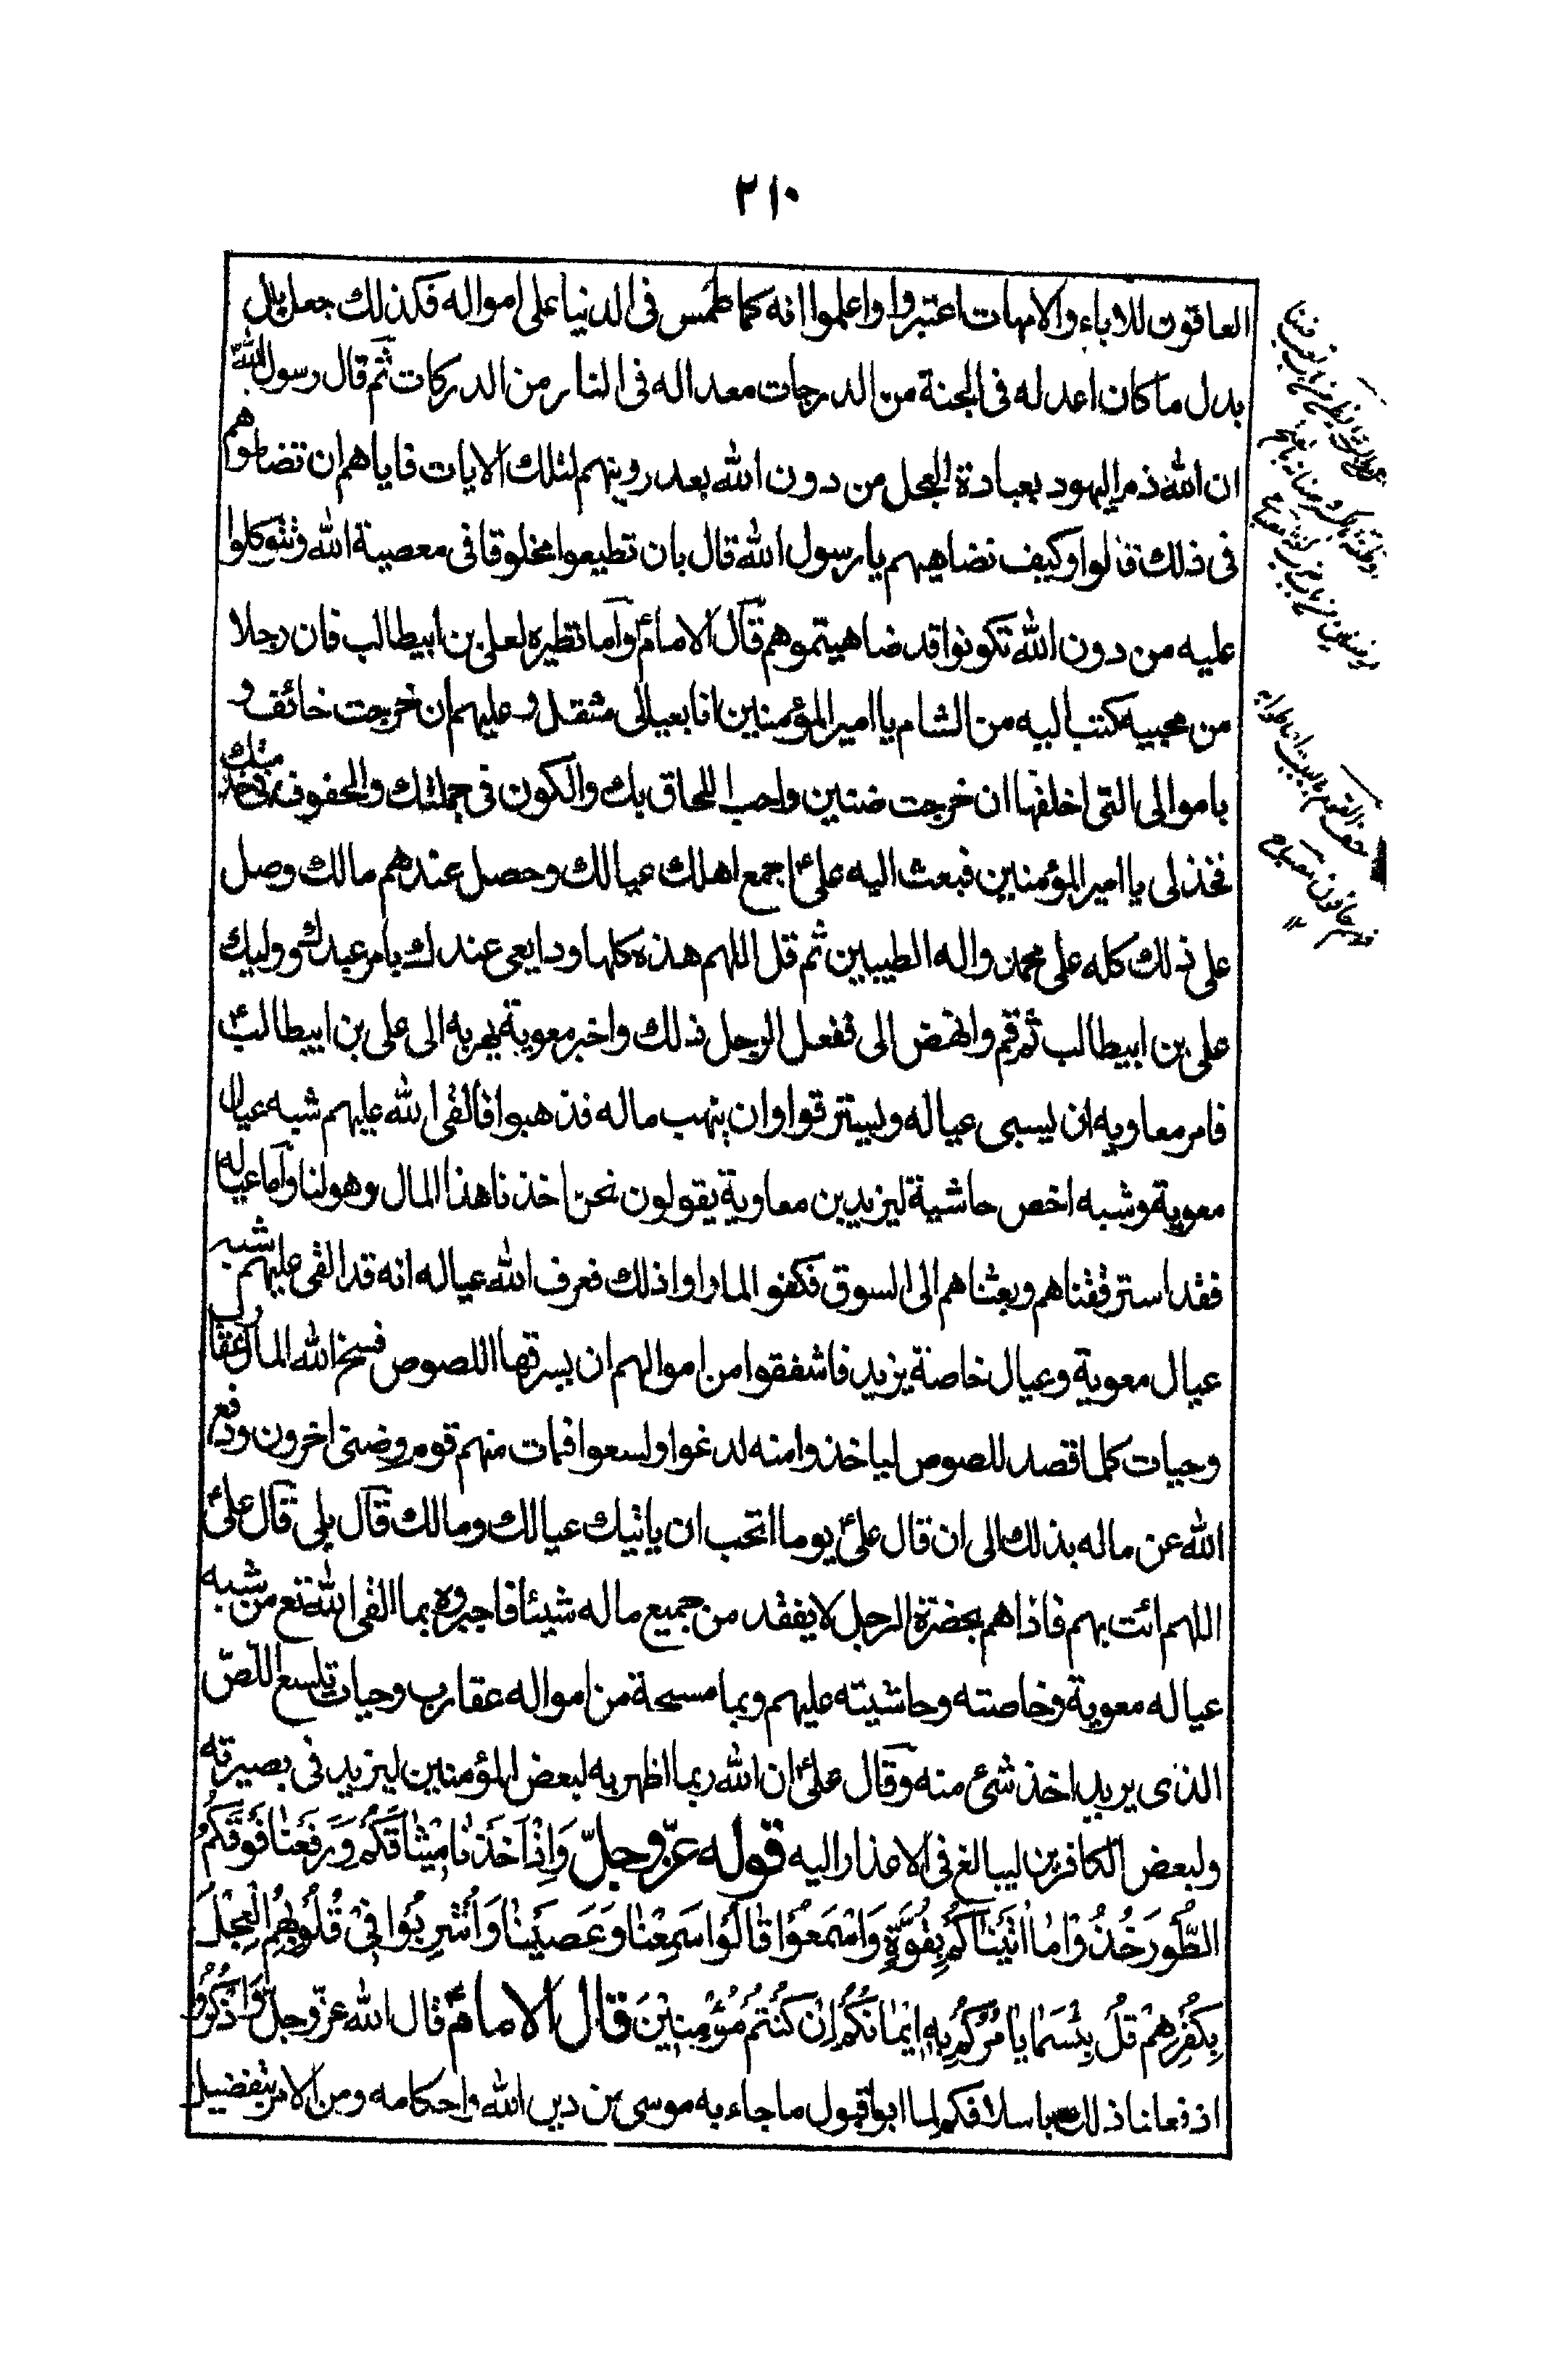 ٢١٠
العاقون للاباء والامهات اعتبروا واعلموا انه كما طمس فى الدنيا على امواله فكذلك جعل بال
بدل ما كان اعد له فى الجنة من الدرجات معدا له فى النار من الدركات ثم قال رسول الله
ان الله ذم اليهود بعبادة العجل من دون الله بعد رويتهم لتلك الايات فاياهم ان تضاهوهم
فى ذلك قالوا وكيف نضاهيهم يا رسول الله قال بان تطيعوا مخلوقا فى معصية الله وتتوكلوا
عليه من دون الله تكونوا قد ضاهيتموهم قال الامام ع واما نظيره لعلى بن ابيطالب فان رجلا
من محبيه كتب اليه من الشام يا امير المؤمنين انا بعيالى مثقل وعليهم ان خرجت خائف و
باموالى التى اخلفها ان خرجت ضنين واحب اللحاق بك والكون فى جملتك والحفوف فى خدمتك
فخذ لى يا امير المؤمنين فبعث اليه على ع اجمع اهلك عيالك وحصل عندهم مالك وصل
على ذلك كله على محمد واله الطيبين ثم قل اللهم هذه كلها ودايعى عندك بامر عبدك ووليك
على بن ابيطالب ثم قم وانهض الى ففعل الرجل ذلك واخبر معوية بهربه الى على بن ابيطالب ع
فامر معاويه ان يسبى عياله ويسترقوا وان ينهب ماله فذهبوا فالقى الله عليهم شبه عيال
معوية وشبه اخص حاشية ليزيد بن معاوية يقولون نحن اخذنا هذا المال وهو لنا واما عياله
فقد استرققناهم وبعثناهم الى السوق فكفوا لما راوا ذلك فعرف الله عياله انه قد القى عليهم شبه
عيال معوية وعيال خاصة يزيد فاشفقوا من اموالهم ان يسرقها اللصوص فمسخ الله المال عقارب
وحيات كلما قصد اللصوص لياخذوا منه لدغوا ولسعوا فمات منهم قوم وضنى اخرون ودفع
الله عن ماله بذلك الى ان قال على ع يوما اتحب ان ياتيك عيالك ومالك قال بلى قال على ع
اللهم ائت بهم فاذا هم بحضرة الرجل لا يفقد من جميع ماله شيئا فاخبروه بما القى الله تع من شبه
عياله معوية وخاصته وحاشيته عليهم وبما مسخه من امواله عقارب وحيات تلسع اللص
الذى يريد اخذ شئ منه وقال على ع ان الله ربما اظهر به لبعض المؤمنين ليزيد فى بصيرته
ولبعض الكافرين ليبالغ فى الاعذار اليه قوله عزّ وجلّ وَاِذْ اَخَذْنٰا مِيْثٰاقَكُمْ وَرَفَعْنٰا فَوْقَكُمُ
الطُّورَ خُذُوْا مٰا اٰتَيْنٰاكُمْ بِقُوَّةٍ وَاسْمَعُوْا قٰالُوْا سَمِعْنٰا وَعَصَيْنٰا وَاُشْرِبُوْا فِيْ قُلُوْبِهِمُ الْعِجْلَ
بِكُفْرِهِمْ قُلْ بِئْسَمٰا يٰامُرُكُمْ بِهِ اِيْمٰانُكُمْ اِنْ كُنْتُمْ مُؤْمِنِيْنَ قال الامام ع قال الله عزّ وجلّ وَاذْكُرُوا
اذ فعلنا ذلك باسلافكم لما ابوا قبول ما جاء به موسى من دين الله واحكامه ومن الامر بتفضيل